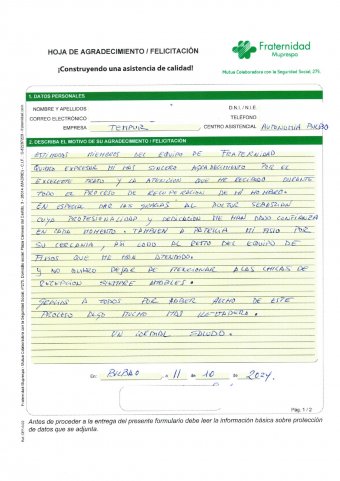 HOJA DE AGRADECIMIENTO / FELICITACIÓN
Fraternidad
Muprespa
¡Construyendo una asistencia de calidad!
Mutua Colaboradora con la Seguridad Social, 275.
1. DATOS PERSONALES
NOMBRE Y APELLIDOS
D.N.I./N.I.E.
CORREO ELECTRÓNICO
TELÉFONO
EMPRESA TEMPUR CENTRO ASISTENCIAL AUTONOMIA BILBAO
2. DESCRIBA EL MOTIVO DE SU AGRADECIMIENTO / FELICITACIÓN
ESTIMADOS MIEMBROS DEL EQUIPO DE FRATERNIDAD
QUIERO EXPRESAR MI MAS SINCERO AGRADECIMIENTO POR EL
EXCELENTE TRATO Y LA ATENCION QUE HE RECIBIDO DURANTE
TODO EL PROCESO DE RECUPERACION DE MI HOMBRO.
EN ESPECIAL DAR LAS GRACIAS AL DOCTOR SEBASTIAN
CUYA PROFESIONALIDAD Y DEDICACION ME HAN DADO CONFIANZA
EN CADA MOMENTO. TAMBIEN A PATRICIA MI FISIO POR
SU CERCANIA, ASI COMO AL RESTO DEL EQUIPO DE
FISIOS QUE ME HAN ATENDIDO.
Y NO QUIERO DEJAR DE MENCIONAR A LAS CHICAS DE
RECEPCION SIEMPRE AMABLES.
GRACIAS A TODOS POR HABER HECHO DE ESTE
PROCESO ALGO MUCHO MAS LLEVADERO.
UN CORDIAL SALUDO.
En: BILBAO a 11 de 10 de 2024.
Pág. 1 / 2
Antes de proceder a la entrega del presente formulario debe leer la información básica sobre protección
de datos que se adjunta.